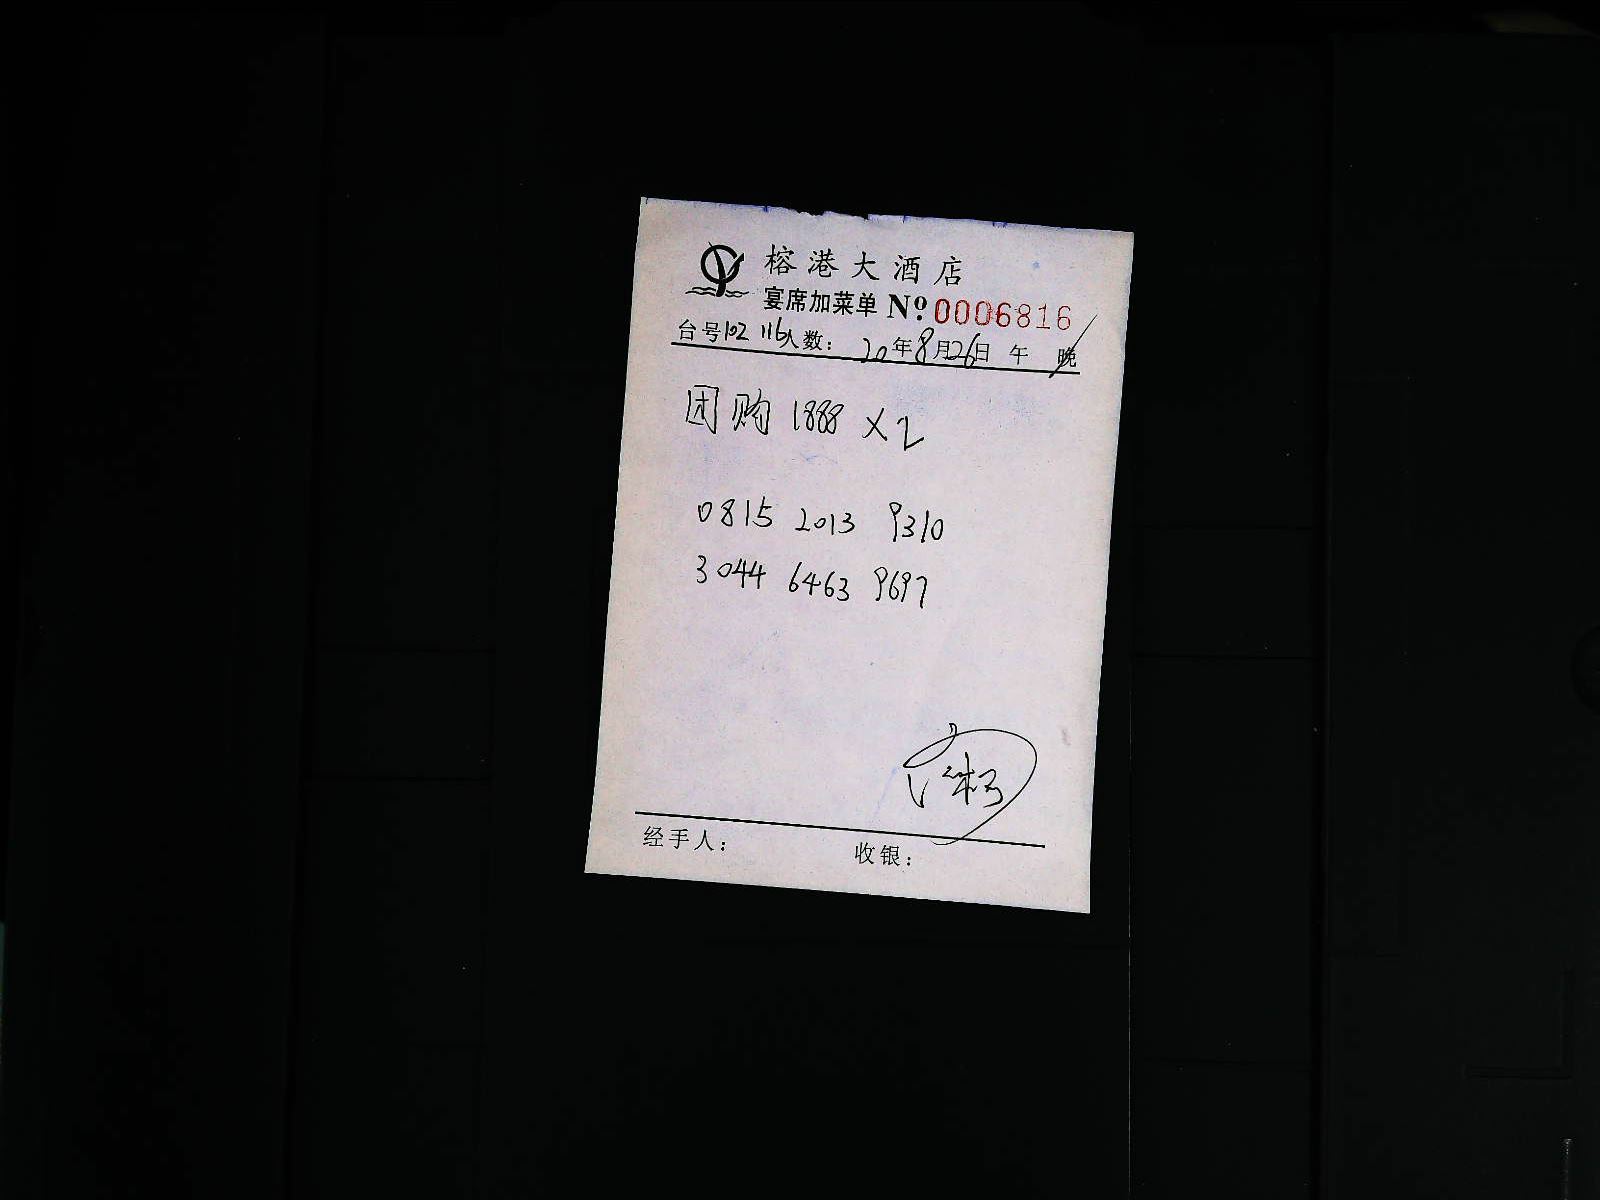 榕港大酒店
宴席加菜单 Nº:0006816
台号102 116人数: 20年8月26日 午 晚
团购 1888 X2
0815 2013 9310
3044 6463 9697
经手人: 收银: